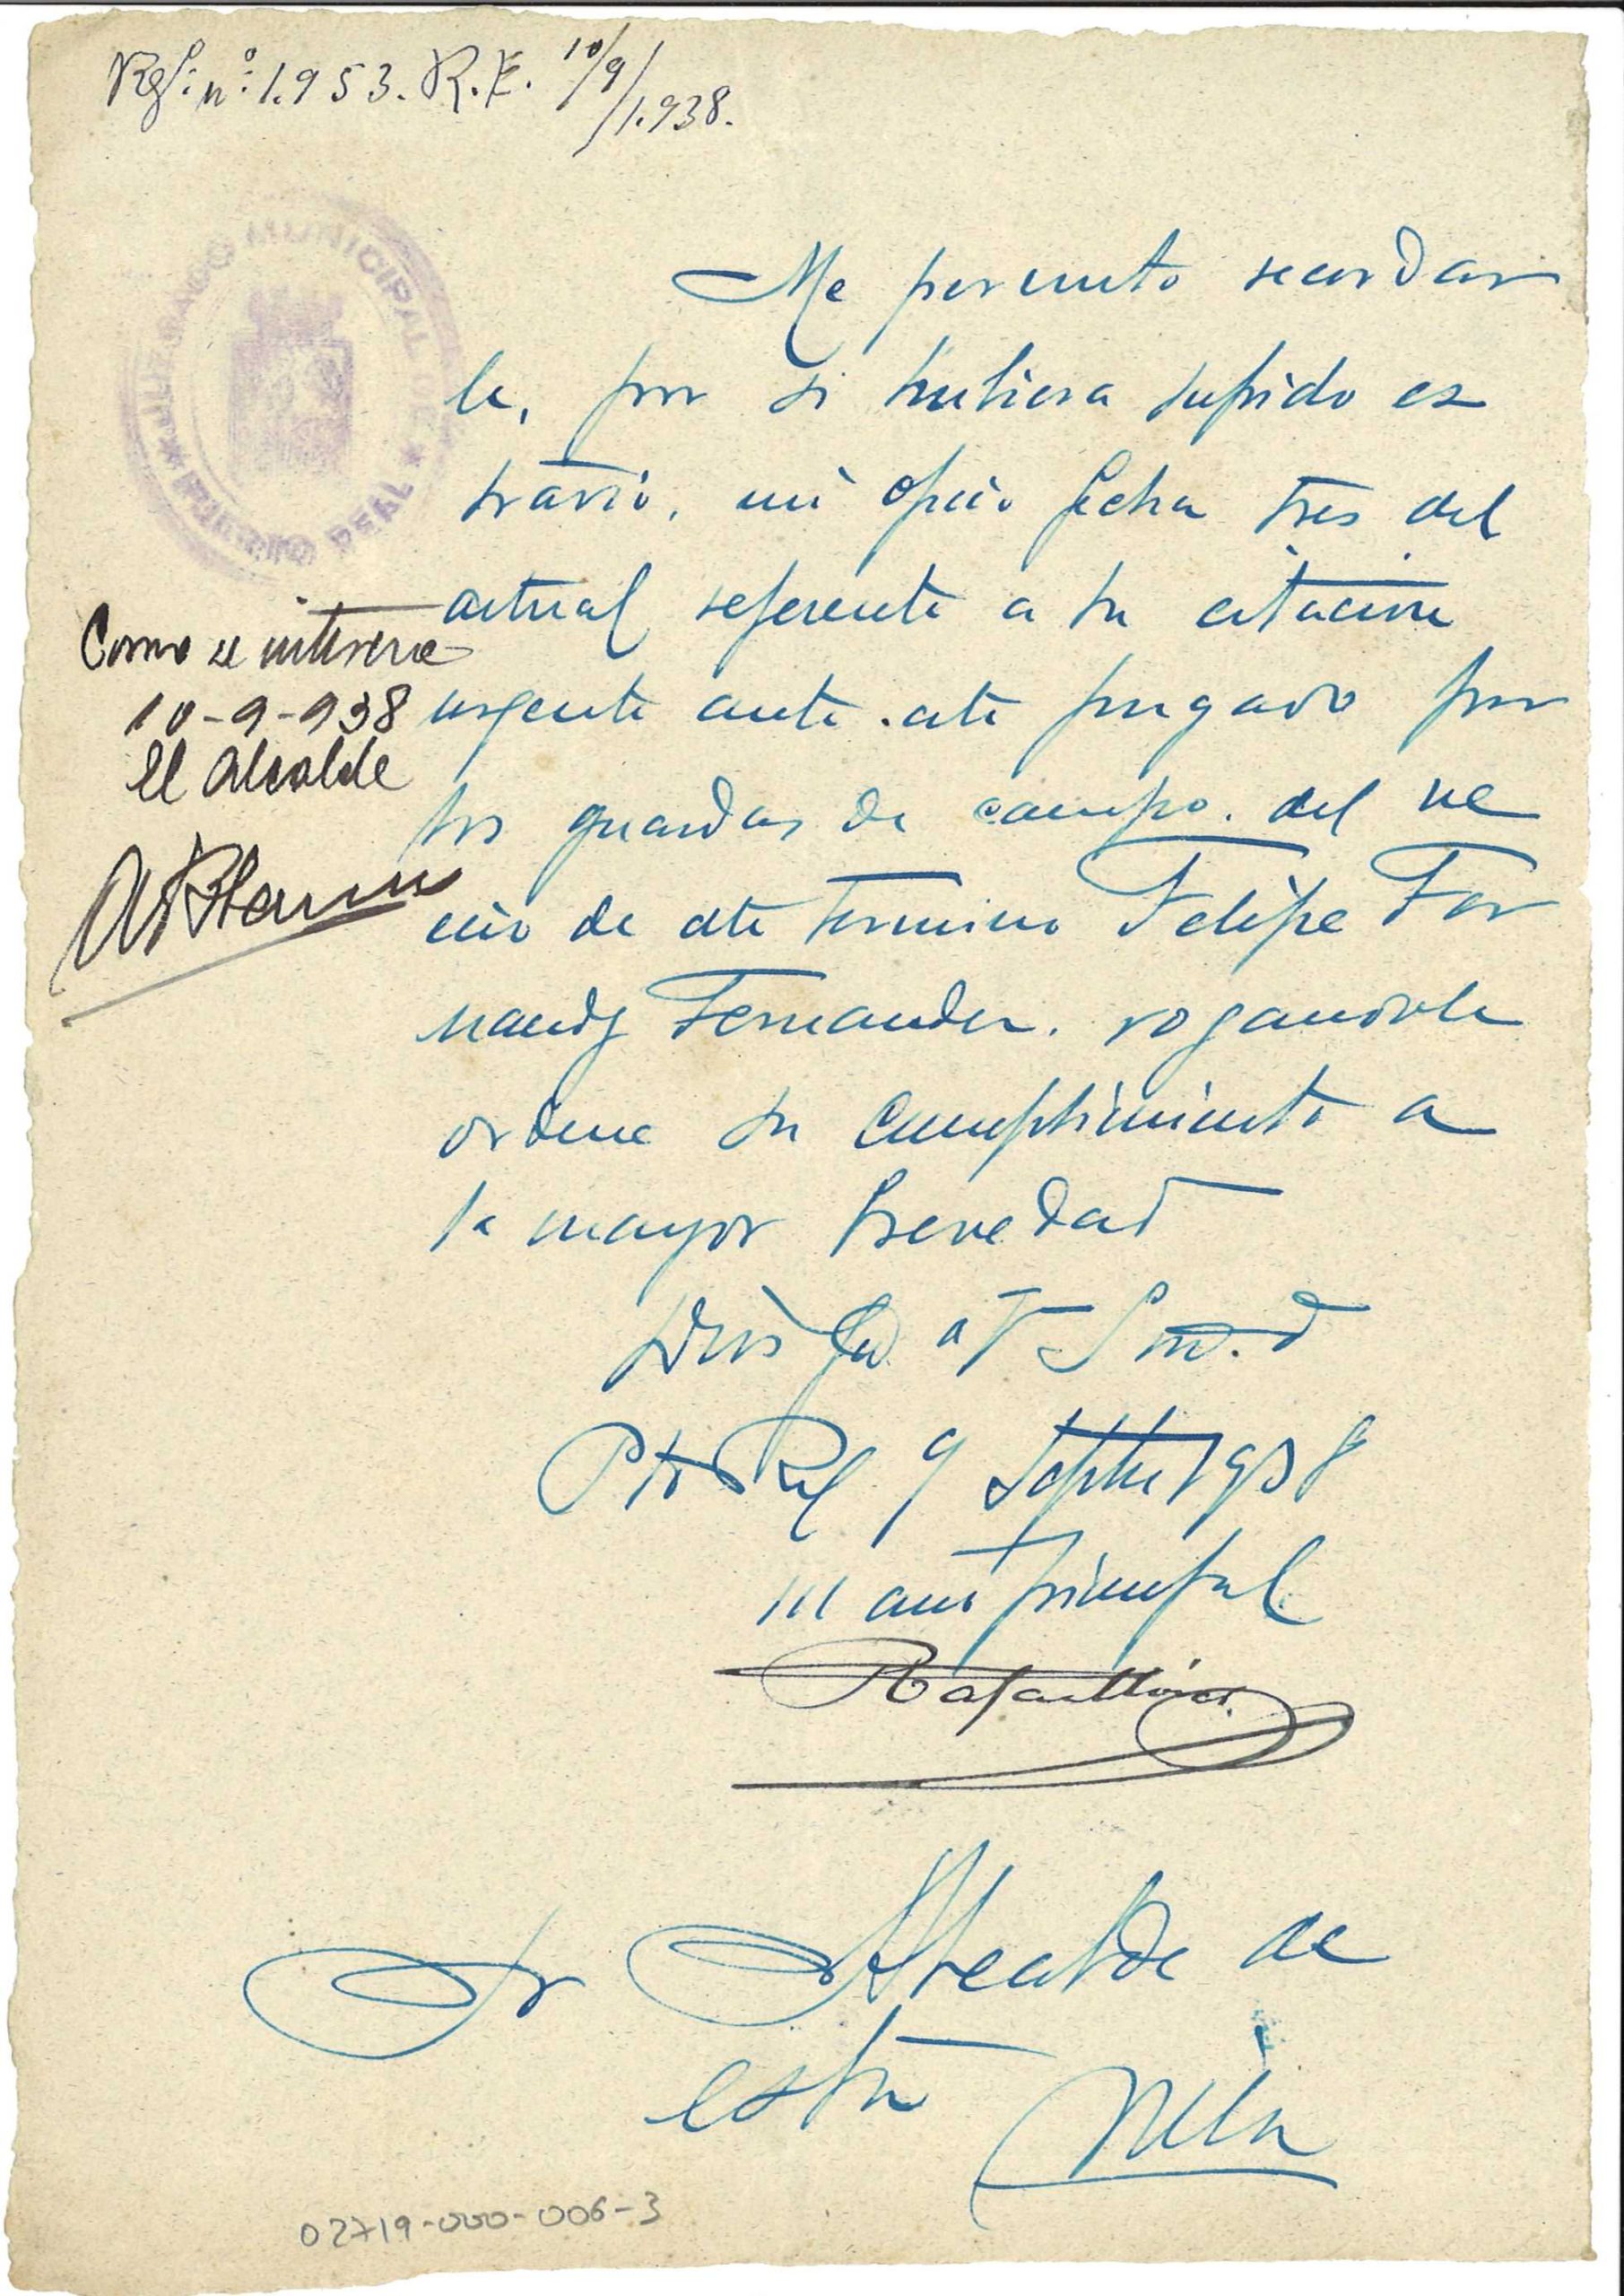 Rgſ: nº: 1.953. R.E. 10/9/1.938.
JUZGADO MUNICIPAL DE
★ PUERTO REAL ★
Me permito recordar
le, por si hubiera sufrido ex
travio, mi oficio fecha tres del
actual referente a la citacion
urgente ante este juzgado por
los guardas de campo. del ve
cino de este termino Felipe Fer
nandz Fernandez. rogandole
ordene su cumplimiento a
la mayor brevedad
Dios gu. a V S m. a
Pto Rel 9 Septbre 1938
III año triunfal
Rafael
Sr Alcalde de
esta Villa
Como se interesa
10-9-938
El Alcalde
02719-000-006-3